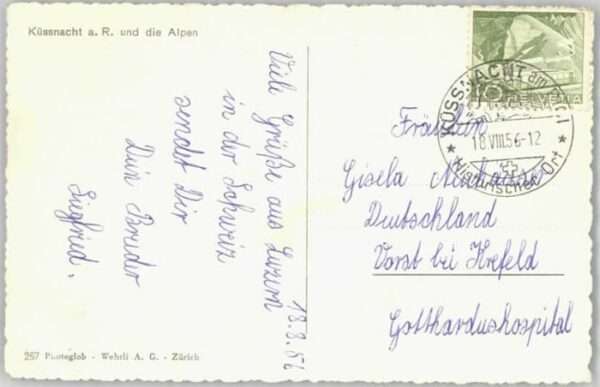 Küssnacht a. R. und die Alpen
Viele Grüße aus Luzern
in der Schweiz
sendet Dir
Dein Bruder
Siegfried.
18.8.56
KÜSSNACHT am RIGI
18.VIII.56-12
Historischer Ort
Fräulein
Gisela
Deutschland
Vorst bei Krefeld
Gotthardushospital
257 Photoglob - Wehrli A. G. - Zürich